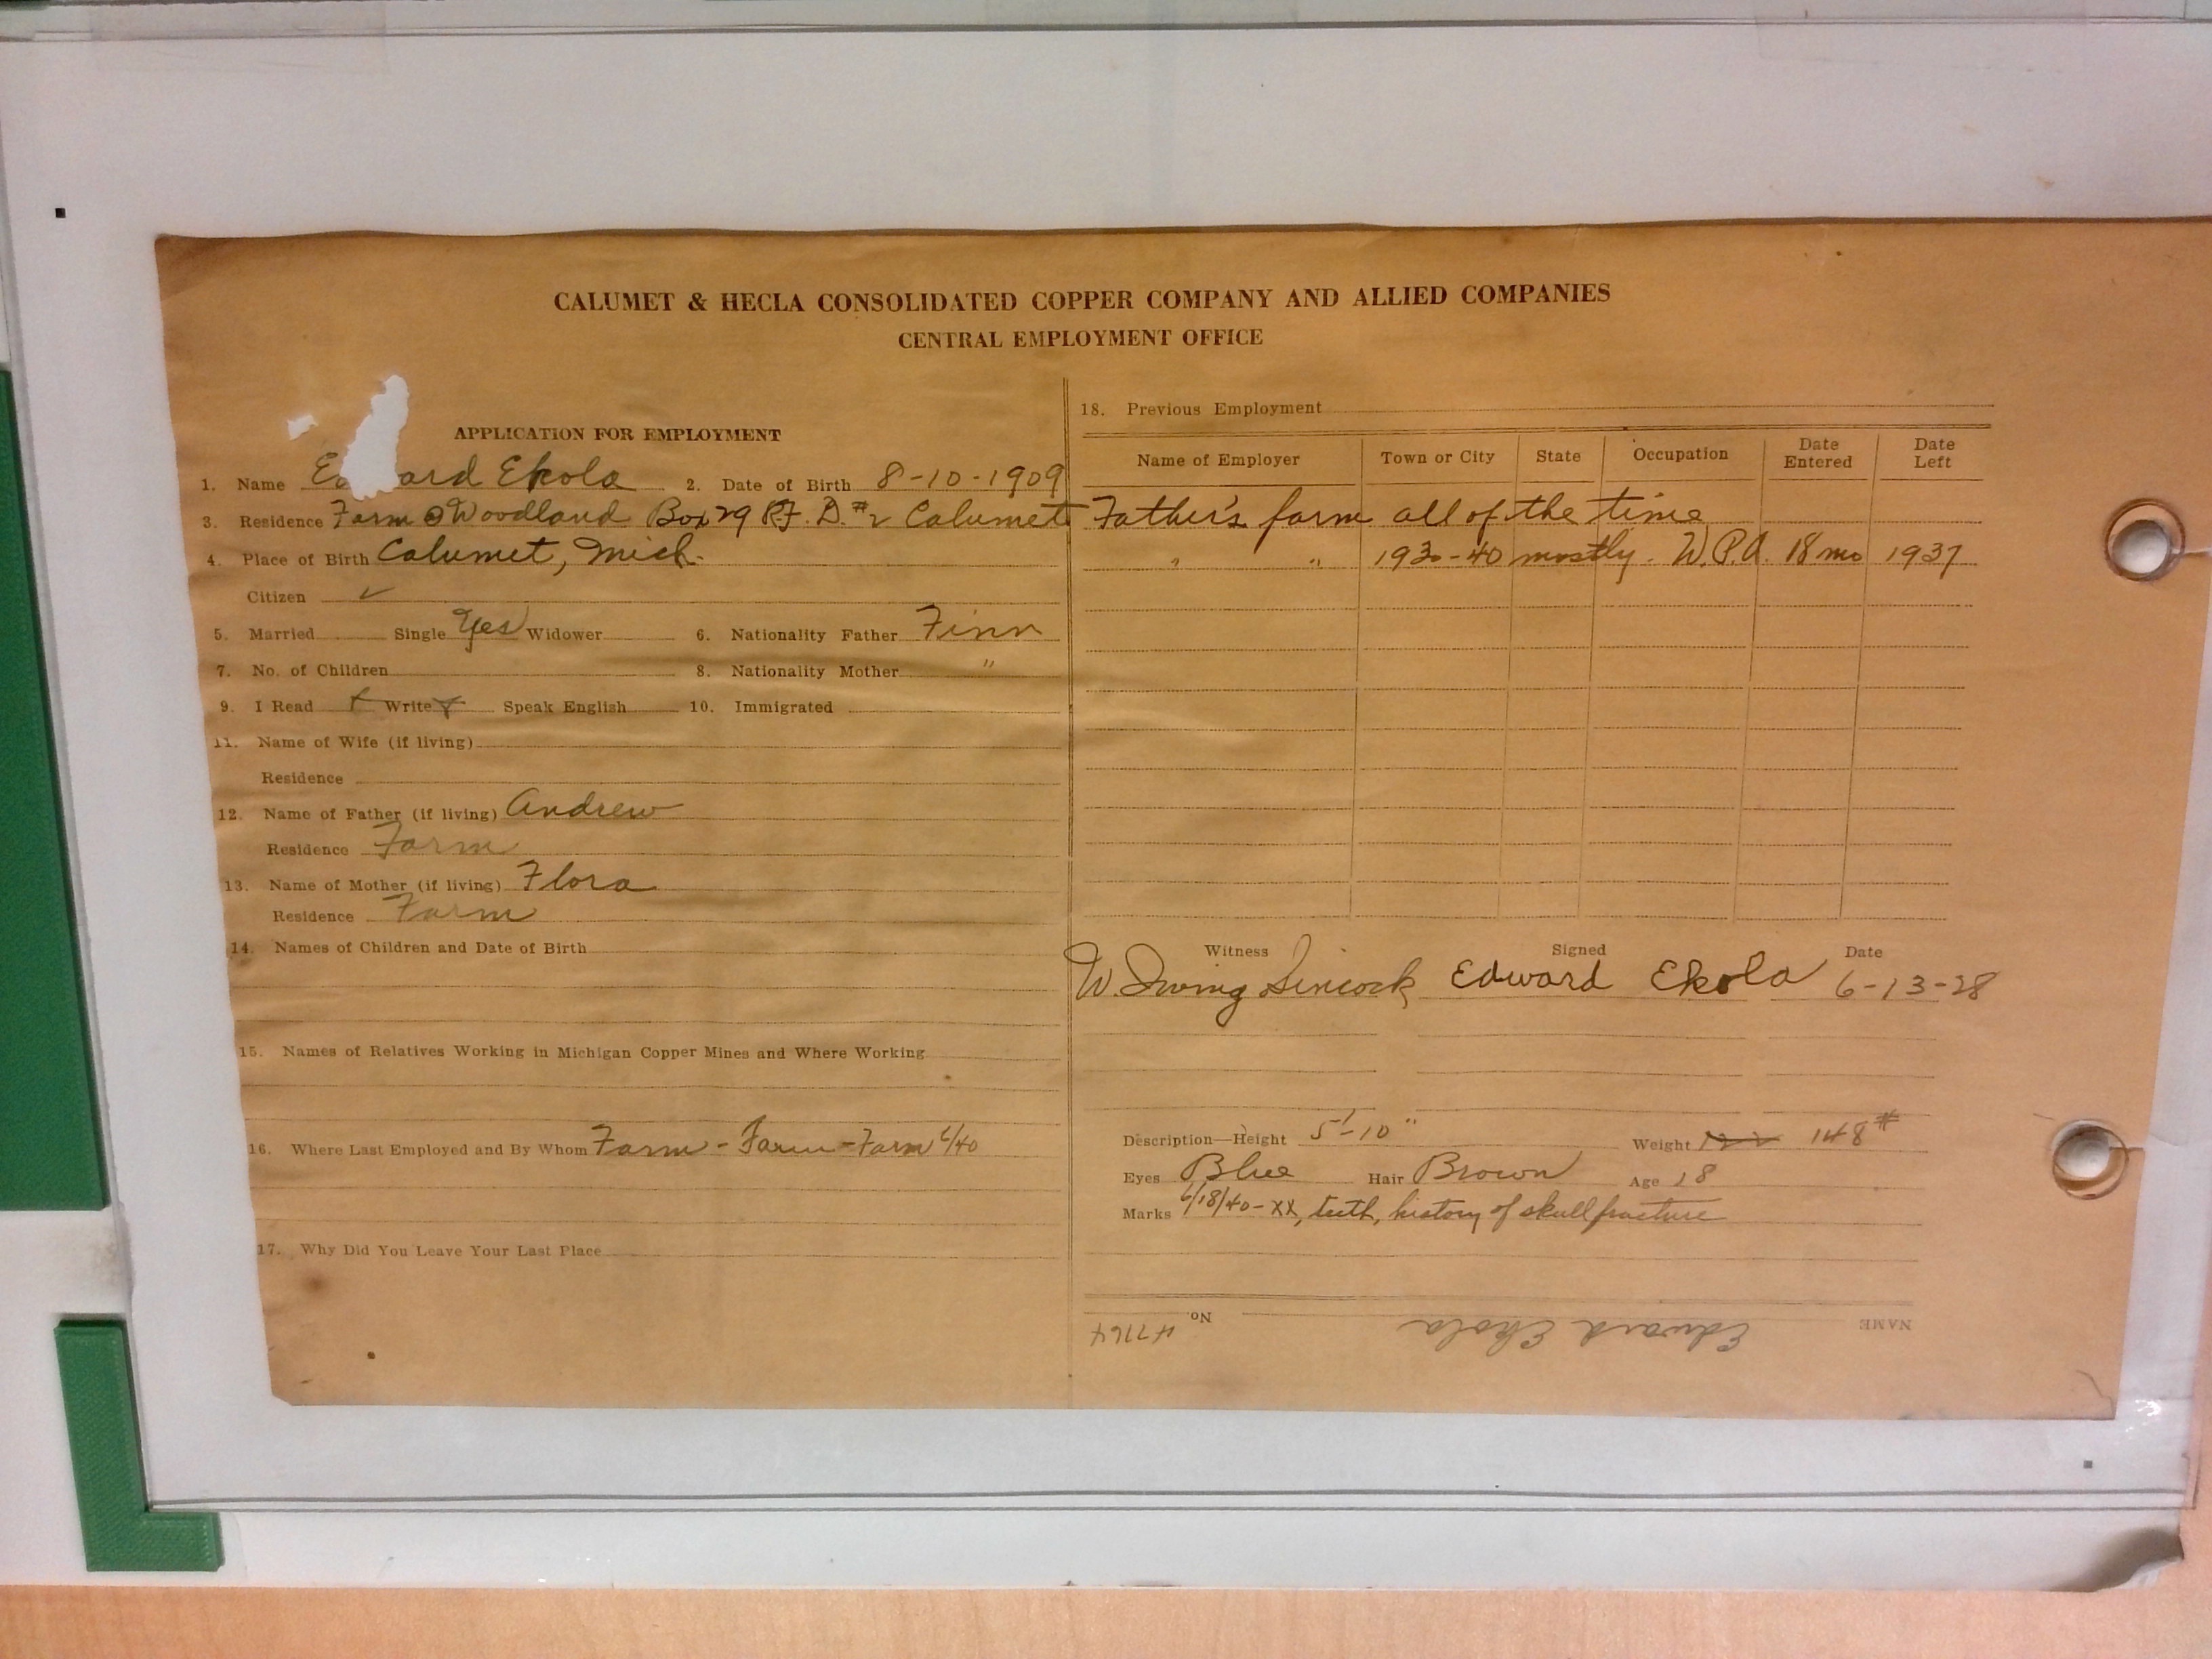 CALUMET & HECLA CONSOLIDATED COPPER COMPANY AND ALLIED COMPANIES
CENTRAL EMPLOYMENT OFFICE
APPLICATION FOR EMPLOYMENT
1. Name Ed ard Ekola 2. Date of Birth 8-10-1909
3. Residence Farm @ Woodland Box 29 R.F.D. #2 Calumet
4. Place of Birth Calumet, Mich.
Citizen ✓
5. Married Single Yes Widower 6. Nationality Father Finn
7. No. of Children 8. Nationality Mother "
9. I Read Write Speak English 10. Immigrated
11. Name of Wife (if living)
Residence
12. Name of Father (if living) Andrew
Residence Farm
13. Name of Mother (if living) Flora
Residence Farm
14. Names of Children and Date of Birth
15. Names of Relatives Working in Michigan Copper Mines and Where Working
16. Where Last Employed and By Whom Farm - Farm - Farm 6/40
17. Why Did You Leave Your Last Place
18. Previous Employment
Name of Employer Town or City State Occupation Date Entered Date Left
Father's farm all of the time
" " 1930-40 mostly. W.P.A. 18 mo 1937
Witness Signed Date
W. Irving Sincock Edward Ekola 6-13-28
Description—Height 5'-10" Weight 148#
Eyes Blue Hair Brown Age 18
Marks 6/18/40-XX, teeth, history of skull fracture
NAME Edward Ekola No. 47164